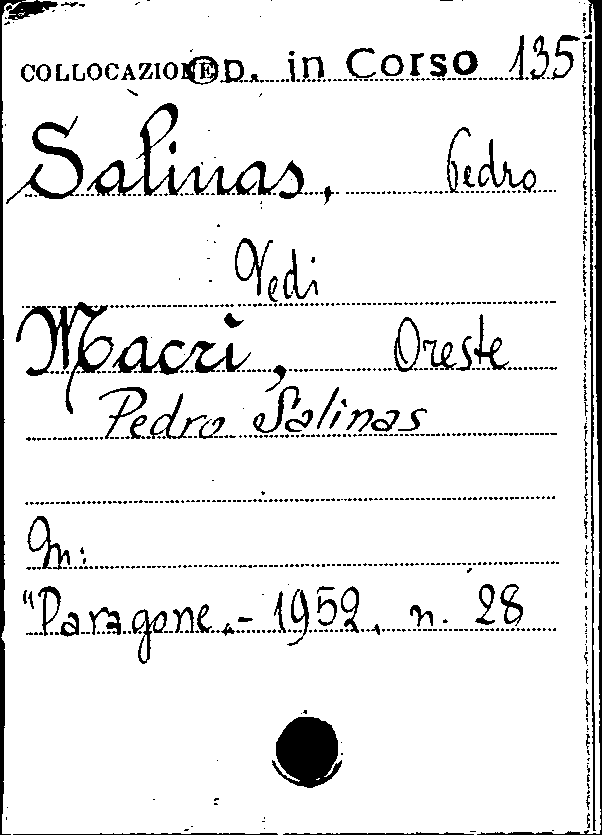 COLLOCAZIONE Op. in Corso 135
Salinas, Pedro
Vedi
Macrì, Oreste
Pedro Salinas
In:
"Paragone„ - 1952, n. 28